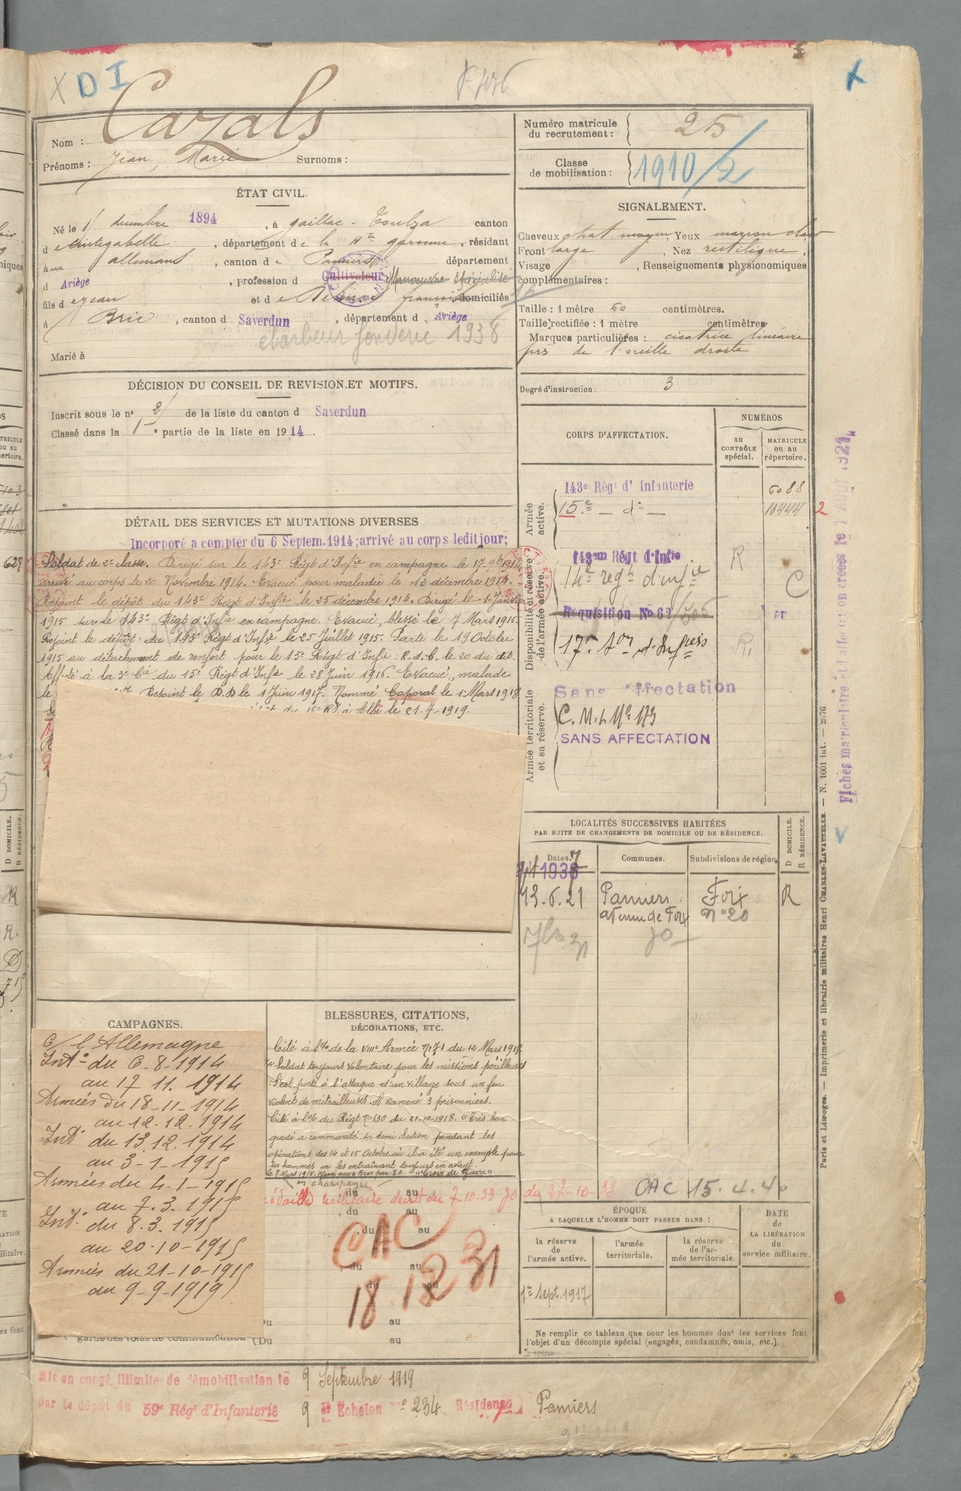 X DI
Nom : Cazals
Prénoms : Jean, Marie Surnoms :
Numéro matricule du recrutement : 25
Classe de mobilisation : 1910/2
ÉTAT CIVIL.
Né le 1 décembre 1894, à Gaillac-Toulza canton
de Cintegabelle, département de la Hte Garonne, résidant
à allemans, canton de Pamiers département
d Ariège, profession d Cultivateur Manoeuvre
fils de Jean et de françoise domiciliés
à Brie, canton d Saverdun, département d Ariège
ebarbeur fonderie 1938
Marié à
SIGNALEMENT.
Cheveux chat moyen, Yeux marron clair
Front large, Nez rectiligne,
Visage , Renseignements physionomiques
complémentaires :
Taille : 1 mètre 60 centimètres.
Taille rectifiée : 1 mètre centimètres
Marques particulières : cicatrice linéaire
près de l'oreille droite
Degré d'instruction : 3
DÉCISION DU CONSEIL DE REVISION ET MOTIFS.
Inscrit sous le n° 2 de la liste du canton d Saverdun
Classé dans la 1e partie de la liste en 1914.
DÉTAIL DES SERVICES ET MUTATIONS DIVERSES
Incorporé à compter du 6 Septem. 1914; arrivé au corps ledit jour;
Soldat de 2e classe. Dirigé sur le 143e Régt d'Infie en campagne le 17 9bre 1914
arrivé au corps le 20 Novembre 1914. Evacué pour maladie le 13 décembre 1914.
Rejoint le dépôt du 143e Régt d'Infie le 25 décembre 1914. Dirigé le 4 Janvier
1915 sur le 143e Régt d'Infie en campagne. Evacué, blessé le 7 Mars 1915.
Rejoint le dépôt du 143e Régt d'Infie le 25 Juillet 1915. Parti le 19 Octobre
1915 au détachement de renfort pour le 15e Régt d'Infie. R.d.C. le 20 du dit.
Affecté à la 3e Cie du 15e Régt d'Infie le 28 Juin 1916. Evacué, malade
le Rejoint le D.D le 1 Juin 1917. Nommé Caporal le 1 Mars 1918
du 15e RI à Albi le 21-7-1919.
CORPS D'AFFECTATION.
NUMÉROS
AU CONTRÔLE spécial.
MATRICULE OU AU répertoire.
Armée active.
143e Régt d'Infanterie 6088
15e — do — 10444 2
Disponibilité et réserve de l'armée active.
143em Régt d'Infie R
14e regt d'infie C
Requisition No 62
17e
Armée territoriale et sa réserve.
Sans affectation
C.M.I. No 173
SANS AFFECTATION
LOCALITÉS SUCCESSIVES HABITÉES
PAR SUITE DE CHANGEMENTS DE DOMICILE OU DE RÉSIDENCE.
Dates. Communes. Subdivisions de région. D DOMICILE. R RÉSIDENCE.
13.6.21 Pamiers Foix R
avenue de Foix n° 20
CAMPAGNES.
C/ l'Allemagne
Intr du 6-8-1914
au 17 11. 1914
Armées du 18-11-1914
au 12.12.1914
Intr du 13.12.1914
au 3-1-1915
Armées du 4-1-1915
au 7.3.1915
Intr du 8.3.1915
au 20-10-1915
Armées du 21-10-1915
au 9-9-1919
BLESSURES, CITATIONS,
DÉCORATIONS, ETC.
Cité à l'ordre de la VIIIe Armée n° 171 du 12 Mars 1918
Soldat toujours volontaire pour les missions périlleuses
S'est porté à l'attaque d'un village sous un feu
violent de mitrailleuses. A ramené 3 prisonniers.
Cité à l'ordre du Régt n° 130 du 21-10-1918. Très bon
gradé a commandé sa demi Section pendant les
opérations des 14 et 15 Octobre où il a été un exemple pour
ses hommes en les entraînant toujours en avant.
Croix de Guerre
en champagne
Médaille militaire décret du 7-10-33 JO du 27-10-33 CAC 15.4.40
du au
CAC
18 12 31
ÉPOQUE
A LAQUELLE L'HOMME DOIT PASSER DANS :
la réserve de l'armée active.
l'armée territoriale.
la réserve de l'armée territoriale.
DATE de LA LIBÉRATION du service militaire.
1er Sept. 1917
Ne remplir ce tableau que pour les hommes dont les services font
l'objet d'un décompte spécial (engagés, condamnés, omis, etc.).
Mis en congé illimité de démobilisation le 9 Septembre 1919
par le dépôt du 59e Régt d'Infanterie 9 e Echelon n° 234 Résidence Pamiers
Paris et Limoges. — Imprimerie et librairie militaires Henri CHARLES-LAVAUZELLE. — N. 1001 int. —